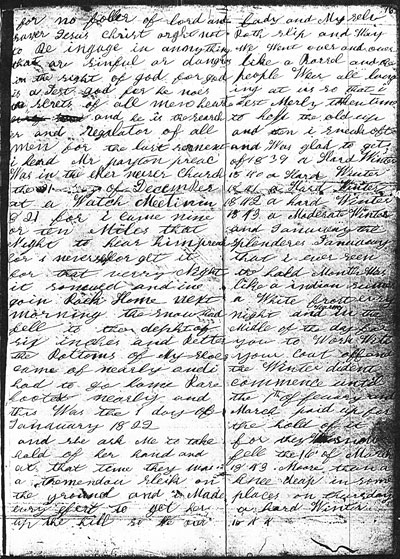 for no foller of lord and
saver Jesus Christ orght not
to Be ingage in anony thing
that are sinful or dangrus
in the sight of god for god
is a Jest god for he noes
secrets of all mens hearts
and he is the search
er and regulator of all
men for the last serment
i heard Mr payton preac
Was in the Church
the 31 of December
at a Watch Meetinin
1821 for i came nine
or ten Miles that
Night to hear him preac
for i never for get it
for that verry Night
it snowed and in
goin Back Home next
morning the snow had
fell to the debth of
six inches and Better
the Bottoms of My Shoes
came of nearly and i
had to go hance Bare
footed nearly and
this Was the 1 day of
January 1822
and she ask Me to take
hold of her hand and
at that time they was
a tremendou sleik on
the ground and i Made
every efert to get her
up the hill so he our
Lady and My self
Both slip and Way
We Went over and over
like a Barrel and the
people Wear all laugh
ing at us so that i
lest Merly time
to help the old up
and then i sneak oft
and Was glad to get
of 1839 a Hard Winter
1840 a Hard Winter
1841 a Hard Winter
1842 a hard Winter
1843 a Moderate Winter
and Januwary the
splenderes Januwary
that i ever seen
the hold Month Was
like a indian
a White frost every
night and in the
Midle of the day for
you to Work With
your Cout off and
the Winter dident
commence until
the 1th of feuary and
March paid up for
the hold of it
for they snow
fell the 16th of March
1843 Moore then a
knee deap in some
places on thursday
a hard Winter